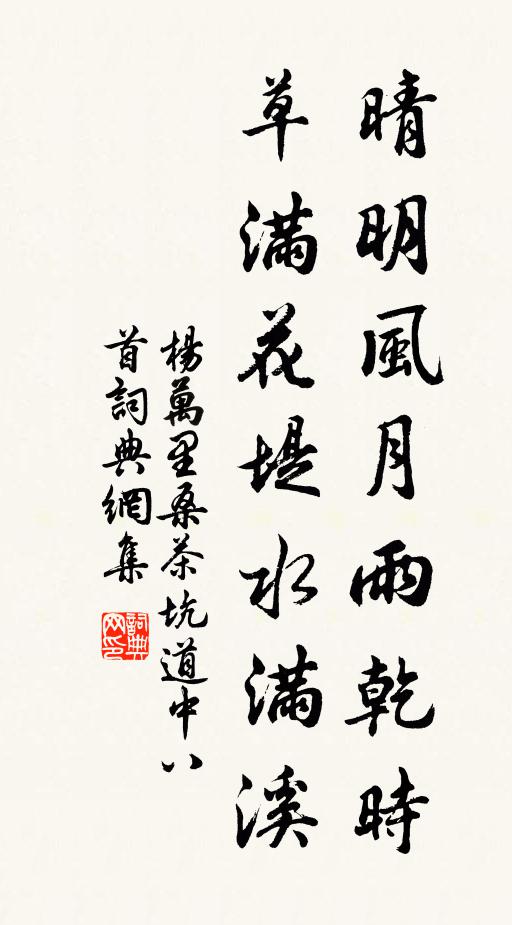 晴明風月雨乾時
草滿花堤水滿溪
楊萬里桑茶坑道中八
首詞典網集
詞典
网印